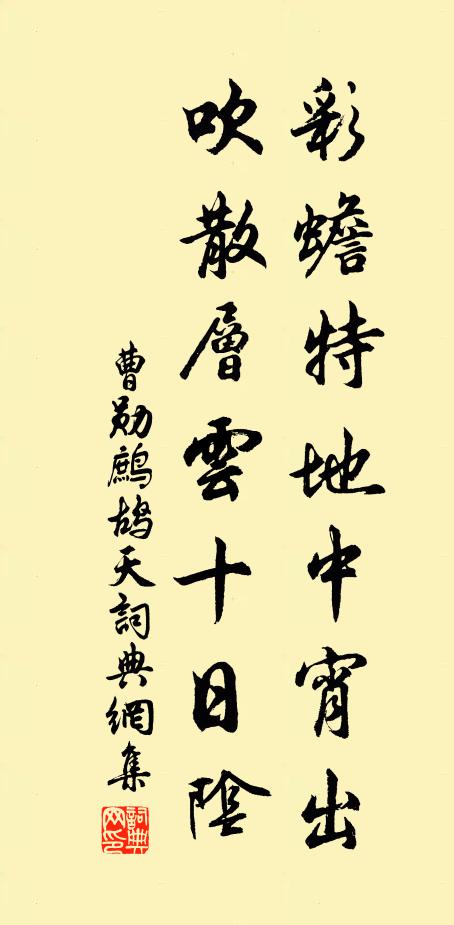 彩蟾特地中宵出
吹散層雲十日陰
曹勛鷓鴣天詞典網集
詞典網印